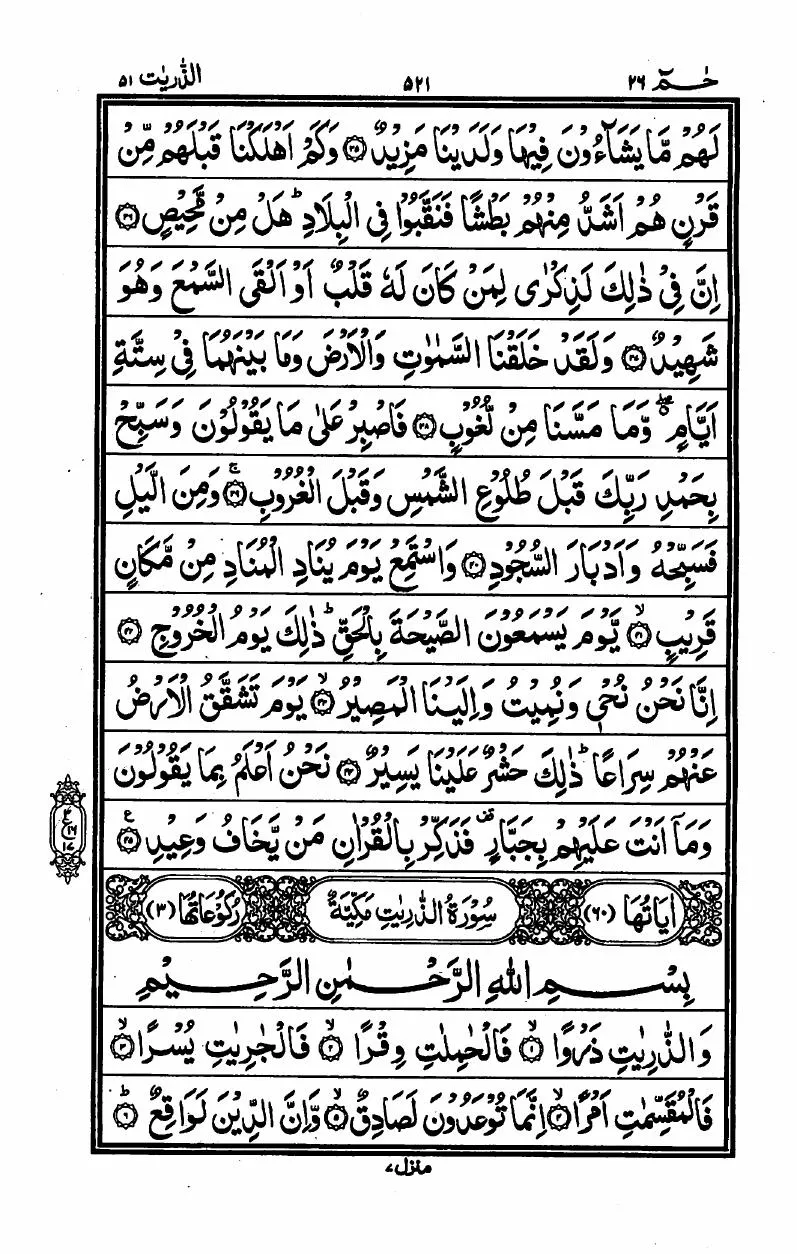 حٰمٓ ٢٦ ٥٢١ الذّٰرِيٰت ٥١
لَهُمْ مَّا يَشَآءُوْنَ فِيْهَا وَلَدَيْنَا مَزِيْدٌ ﴿٣٥﴾ وَكَمْ اَهْلَكْنَا قَبْلَهُمْ مِّنْ
قَرْنٍ هُمْ اَشَدُّ مِنْهُمْ بَطْشًا فَنَقَّبُوْا فِي الْبِلَادِ ؕ هَلْ مِنْ مَّحِيْصٍ ﴿٣٦﴾
اِنَّ فِيْ ذٰلِكَ لَذِكْرٰى لِمَنْ كَانَ لَهٗ قَلْبٌ اَوْ اَلْقَى السَّمْعَ وَهُوَ
شَهِيْدٌ ﴿٣٧﴾ وَلَقَدْ خَلَقْنَا السَّمٰوٰتِ وَالْاَرْضَ وَمَا بَيْنَهُمَا فِيْ سِتَّةِ
اَيَّامٍ ۖ وَّمَا مَسَّنَا مِنْ لُّغُوْبٍ ﴿٣٨﴾ فَاصْبِرْ عَلٰى مَا يَقُوْلُوْنَ وَسَبِّحْ
بِحَمْدِ رَبِّكَ قَبْلَ طُلُوْعِ الشَّمْسِ وَقَبْلَ الْغُرُوْبِ ۚ ﴿٣٩﴾ وَمِنَ الَّيْلِ
فَسَبِّحْهُ وَاَدْبَارَ السُّجُوْدِ ﴿٤٠﴾ وَاسْتَمِعْ يَوْمَ يُنَادِ الْمُنَادِ مِنْ مَّكَانٍ
قَرِيْبٍ ۙ ﴿٤١﴾ يَّوْمَ يَسْمَعُوْنَ الصَّيْحَةَ بِالْحَقِّ ؕ ذٰلِكَ يَوْمُ الْخُرُوْجِ ﴿٤٢﴾
اِنَّا نَحْنُ نُحْيٖ وَنُمِيْتُ وَاِلَيْنَا الْمَصِيْرُ ۙ ﴿٤٣﴾ يَوْمَ تَشَقَّقُ الْاَرْضُ
عَنْهُمْ سِرَاعًا ؕ ذٰلِكَ حَشْرٌ عَلَيْنَا يَسِيْرٌ ﴿٤٤﴾ نَحْنُ اَعْلَمُ بِمَا يَقُوْلُوْنَ
وَمَآ اَنْتَ عَلَيْهِمْ بِجَبَّارٍ قف فَذَكِّرْ بِالْقُرْاٰنِ مَنْ يَّخَافُ وَعِيْدِ ﴿٤٥﴾ ع
اٰيَاتُهَا (٦٠) سُوْرَةُ الذّٰرِيٰتِ مَكِّيَّةٌ رُكُوْعَاتُهَا (٣)
بِسْمِ اللّٰهِ الرَّحْمٰنِ الرَّحِيْمِ
وَالذّٰرِيٰتِ ذَرْوًا ۙ ﴿١﴾ فَالْحٰمِلٰتِ وِقْرًا ۙ ﴿٢﴾ فَالْجٰرِيٰتِ يُسْرًا ۙ ﴿٣﴾
فَالْمُقَسِّمٰتِ اَمْرًا ۙ ﴿٤﴾ اِنَّمَا تُوْعَدُوْنَ لَصَادِقٌ ۙ ﴿٥﴾ وَّاِنَّ الدِّيْنَ لَوَاقِعٌ ؕ ﴿٦﴾
منزل ٧